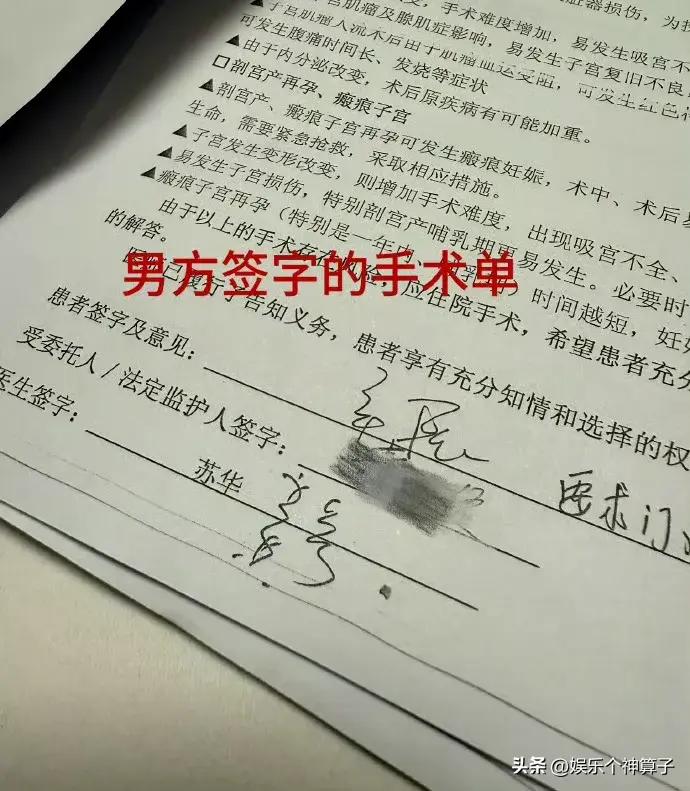 手术难度增加,
脏器损伤,为
子宫肌瘤及腺肌症影响,易发生吸宫不
▲子宫肌瘤人流术后由于肌瘤血运受阻,可发生红色
可发生腹痛时间长、发烧等症状
▲由于内分泌改变,术后原疾病有可能加重。
□剖宫产再孕、瘢痕子宫
▲剖宫产、瘢痕子宫再孕可发生瘢痕妊娠,术中、术后
生命,需要紧急抢救,采取相应措施。
▲子宫发生变形改变,则增加手术难度,出现吸宫不全、
▲易发生子宫损伤,特别剖宫产哺乳期更易发生。必要时
▲瘢痕子宫再孕(特别是一年内、时间越短,妊
由于以上的手术,应住院手术,希望患者充
的解答。
已履行了告知义务,患者享有充分知情和选择的权
男方签字的手术单
患者签字及意见:
受委托人/法定监护人签字:
要求门
医生签字:
苏华
头条 @娱乐个神算子